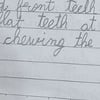 d front teeth
flat teeth at
chewing the